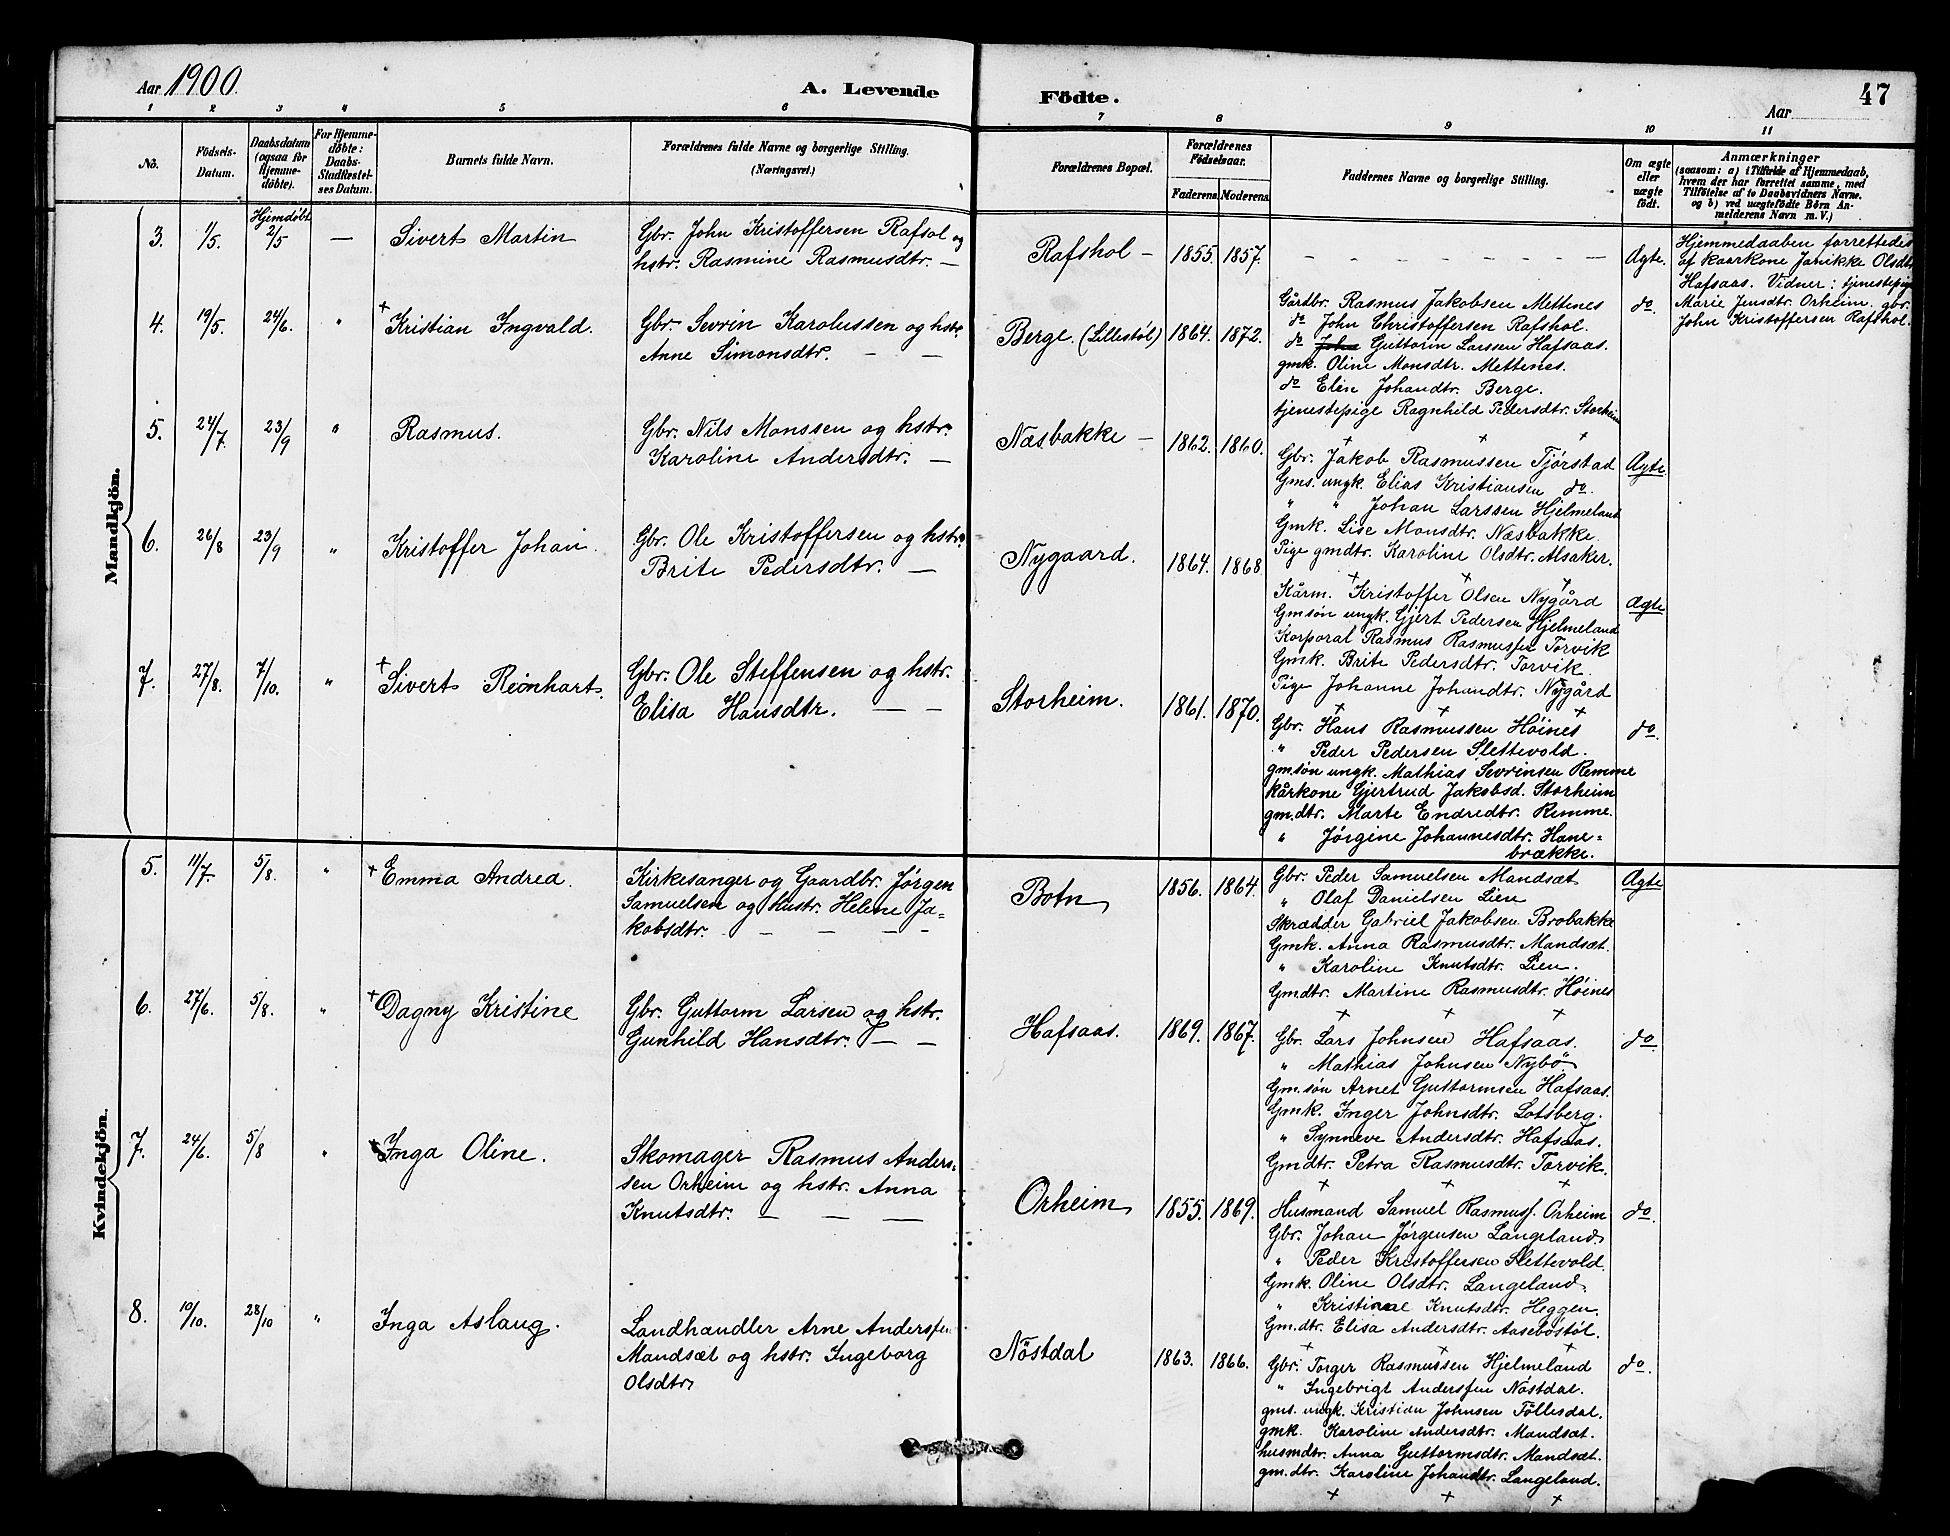 Aar 1900. A. Levende Födte. Aar 47
1 2 3 4 5 6 7 8 9 10 11
No. Födsels-Datum. Daabsdatum (ogsaa for Hjemme-döbte). For Hjemme-döbte: Daabs-Stadfæstel-ses Datum. Barnets fulde Navn. Forældrenes fulde Navne og borgerlige Stilling. (Næringsvei.) Forældrenes Bopæl. Forældrenes Födselsaar. Faderens Moderens Faddernes Navne og borgerlige Stilling. Om ægte eller uægte født. Anmærkninger (saasom: a) i Tilfælde af Hjemmedaab, hvem der har forrettet samme, med Tilföielse af to Daabsvidners Navne. og b) ved uægtefödte Börn An-melderens Navn m. V.)
Mandkjön.
3. 1/5. Hjemdøbt 2/5 — Sivert Martin
Gbr. John Kristoffersen Rafsol og
hstr. Rasmine Rasmusdtr. —
Rafshol — 1855. 1857. — — — — — — — Ægte.
Hjemmedaaben forrettedes
af kaarkone Janikke Olsdtr
Hafsaas. Vidner: tjenestepige
Marie Jensdtr. Orheim, gbr.
John Kristoffersen Rafshol.
4. 19/5. 24/6. " + Kristian Ingvald.
Gbr. Sevrin Karolussen og hstr.
Anne Simonsdtr. — —
Berge. (Lillestøl) 1864. 1872.
Gårdbr. Rasmus Jakobsen Mettenes
do John Christoffersen Rafshol.
do John Guttorm Larssen Hafsaas.
gmk. Oline Monsdtr. Mettenes.
do Elen Johandtr. Berge.
tjenestepige Ragnhild Pedersdtr. Storheim
+ + +
do.
5. 24/7 23/9 " Rasmus.
Gbr. Nils Monssen og hstr.
Karoline Andersdtr. —
Næsbakke — 1862. 1860.
Gbr. Jakob Rasmussen Tjørstad
Gms. ungk. Elias Kristiansen do.
" " Johan Larssen Hjelmeland
Gmk. Lise Monsdtr. Næsbakke.
Pige gmdtr. Karoline Olsdtr. Alsaker.
+ + +
Ægte
6. 26/8 23/9 " Kristoffer Johan.
Gbr. Ole Kristoffersen og hstr.
Brite Pedersdtr. —
Nygaard. 1864. 1868
Kårm. Kristoffer Olsen Nygård
Gmsøn ungk. Gjert Pedersen Hjelmeland
Korporal Rasmus Rasmussen Torvik
Gmk. Brite Pedersdtr. Torvik.
Pige Johanne Johandtr. Nygård
+ + +
Ægte
7. 27/8. 7/10. " + Sivert Reinhart.
Gbr. Ole Steffensen og hstr.
Elisa Hansdtr. — —
Storheim. 1861. 1870.
Gbr. Hans Rasmussen Höines
" Peder Pedersen Slettevold.
gm.søn ungk. Mathias Sevrinsen Remme
Kårkone Gjertrud Jakobsd. Storheim
gm.dtr. Marte Endredtr. Remme.
" Jørgine Johannesdtr. Hane-
brække.
do.
Kvindekjön.
5. 11/7. 5/8. " + Emma Andrea.
Kirkesanger og Gaardbr. Jørgen
Samuelsen og hustr. Helene Ja-
kobsdtr. — — — —
Botn 1856. 1864.
Gbr. Peder Samuelsen Mandsæt
" Olaf Danielsen Lien
Skrædder Gabriel Jakobsen Brobakke
Gmk. Anna Rasmusdtr. Mandsæt.
" Karoline Knutsdtr. Lien.
Gmdtr. Martine Rasmusdtr. Höines
+ + +
Ægte
6. 27/6. 5/8. " + Dagny Kristine
Gbr. Guttorm Larsen og hstr.
Gunhild Hansdtr. — —
Hafsaas. 1869. 1867.
Gbr. Lars Johnsen Hafsaas.
" Mathias Johnsen Nybö
Gm.søn Arnet Guttormsen Hafsaas.
Gmk. Inger Johnsdtr. Lotsberg.
" Synneve Andersdtr. Hafsaas.
Gmdtr. Petra Rasmusdtr. Torvik.
+ + +
do.
7. 24/6. 5/8 " + Inga Oline.
Skomager Rasmus Anders-
sen Orheim og hstr. Anna
Knutsdtr. — — —
Orheim 1855. 1869.
Husmand Samuel Rasmuss. Orheim
Gbr. Johan Jørgensen Langeland
" Peder Kristoffersen Slettevold.
Gmk. Oline Olsdtr. Langeland
" Kristine Knutsdtr. Heggen.
Gm.dtr. Elisa Andersdtr. Aasebøstøl.
+ + +
do.
8. 10/10. 28/10 " Inga Aslaug.
Landhandler Arne Anderssen
Mandsæt og hstr. Ingeborg
Olsdtr
Nöstdal 1863. 1866.
Gbr. Torger Rasmussen Hjelmeland
" Ingebrigt Anderssen Nöstdal.
gms. ungk. Kristian Johnsen Föllesdal.
gmk. Karoline Andersdtr. Mandsæt.
husmdtr. Anna Guttormsdtr. Mandsæt.
gm.dtr. Karoline Johandtr. Langeland.
+ + +
do.